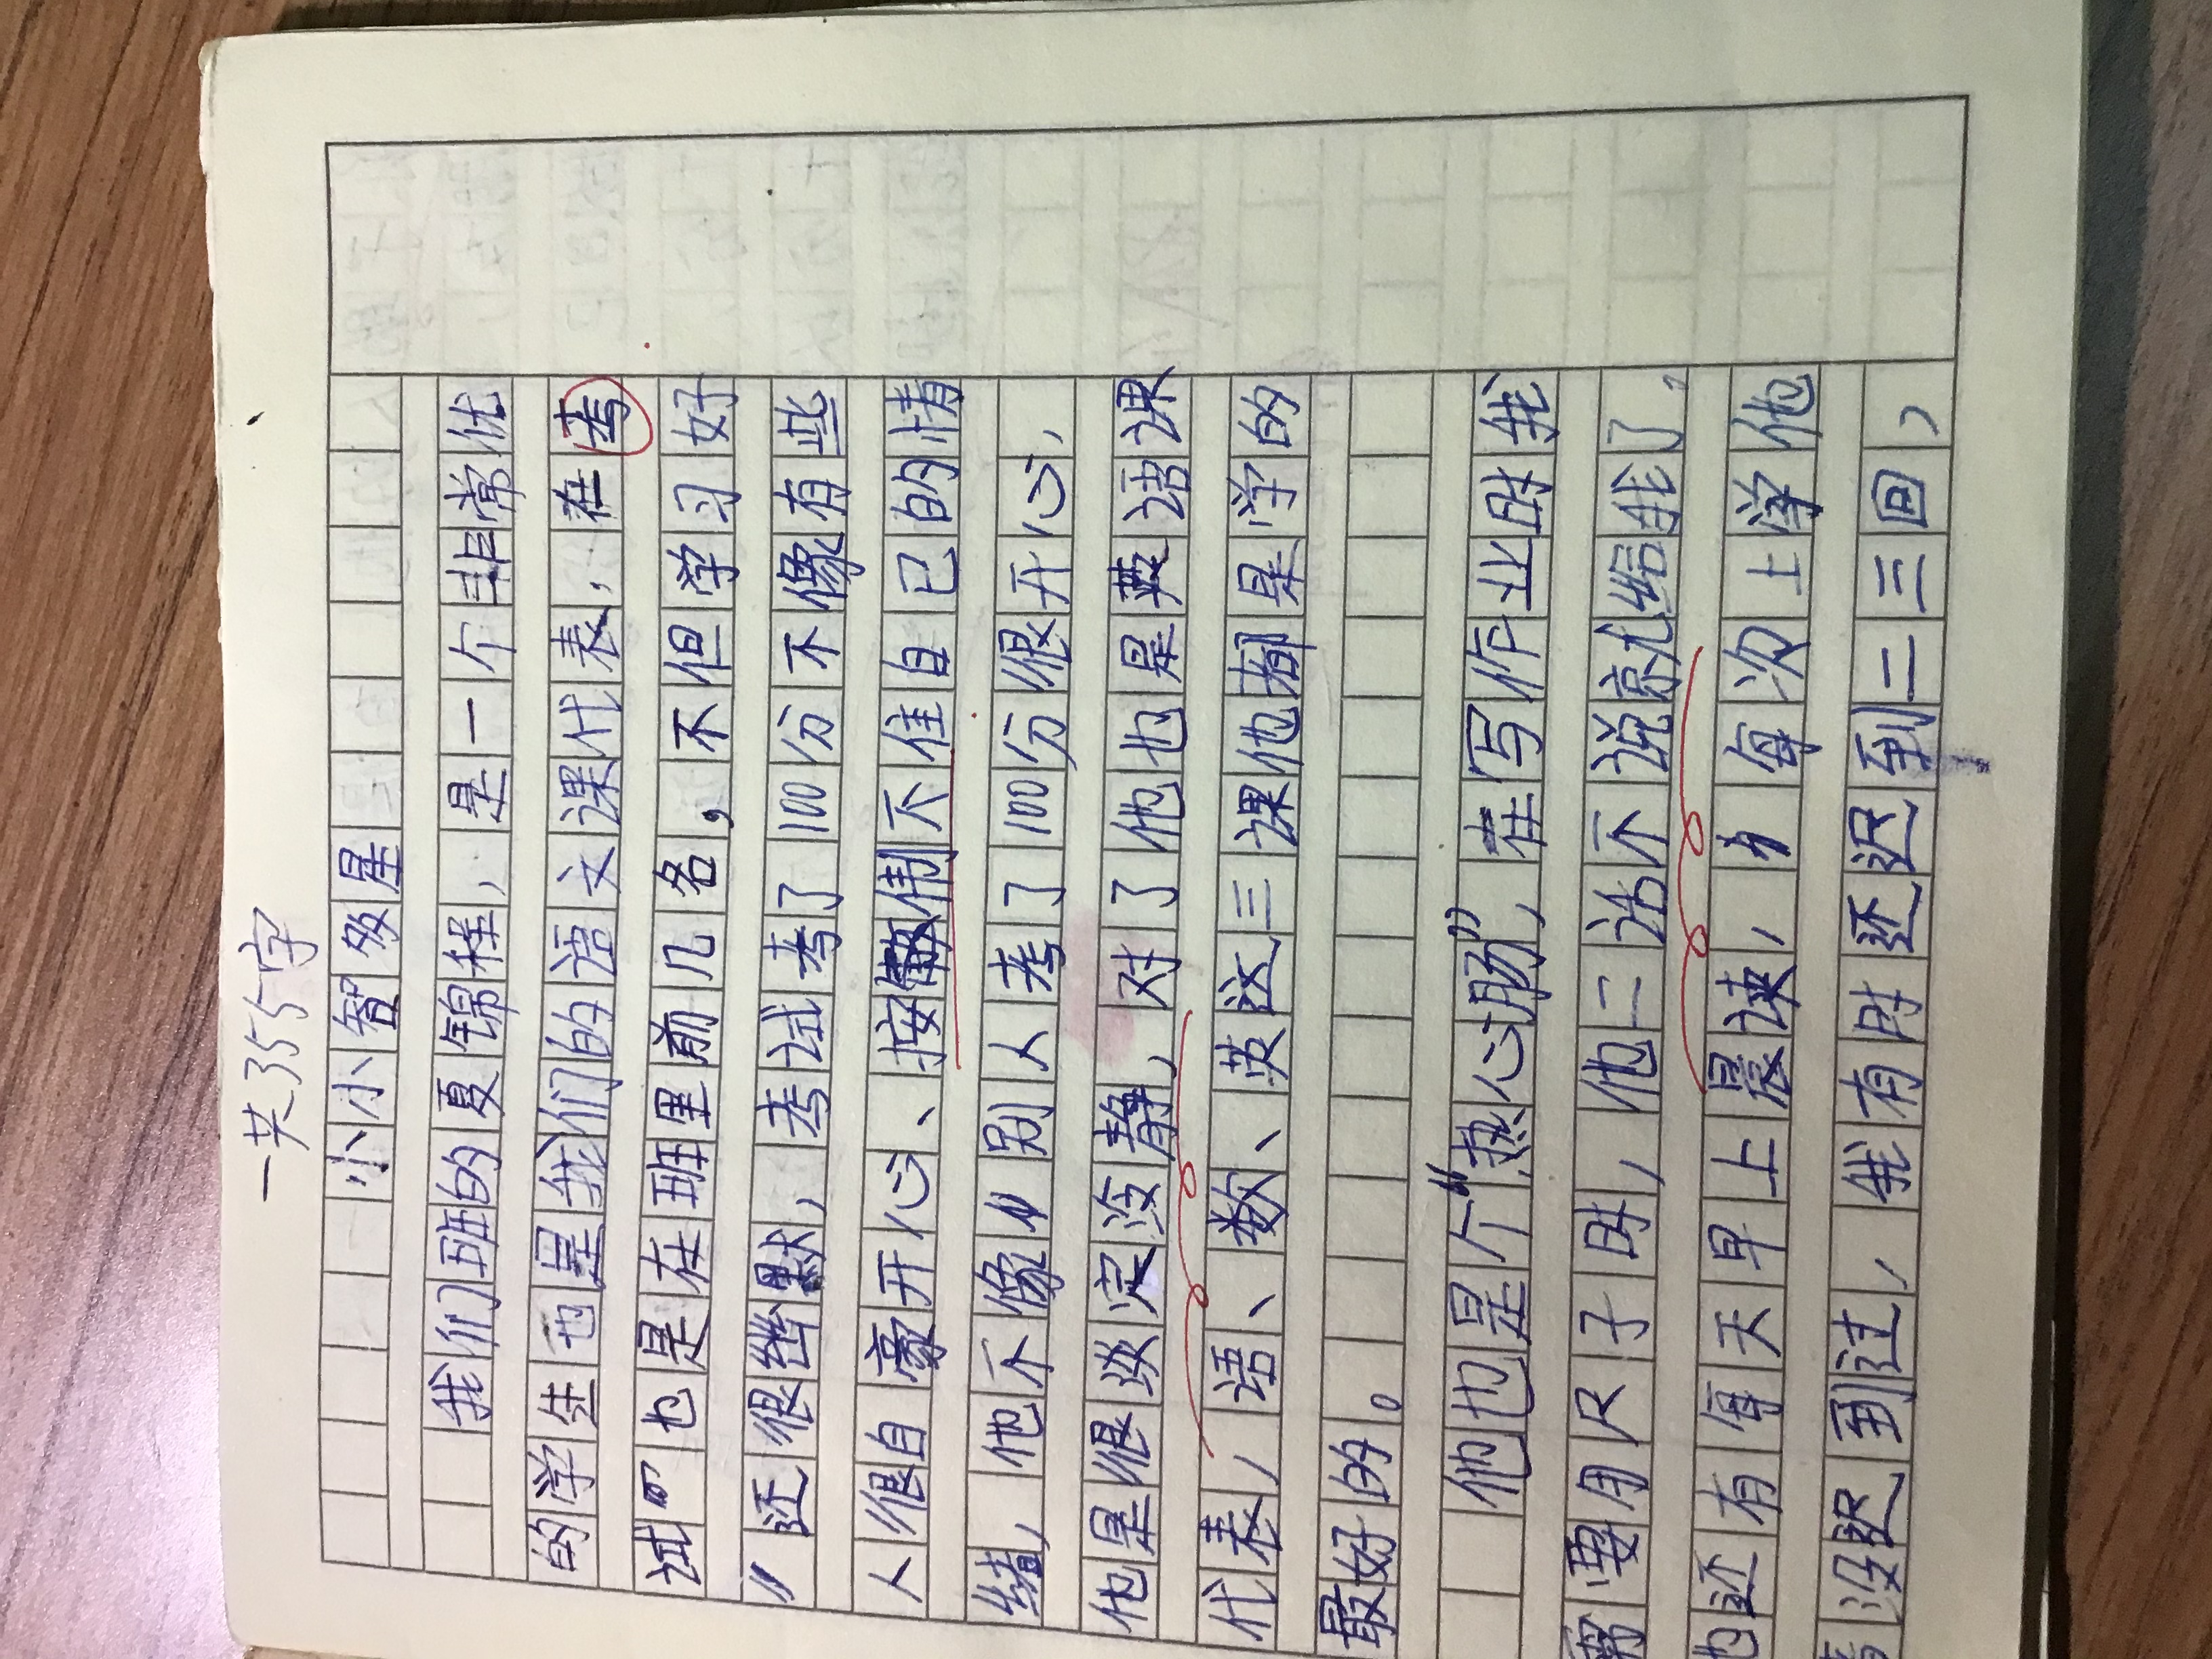 一共355字
小小智多星
我们班的夏锦程,是一个非常优
的学生也是我们的语文课代表,在考
试中也是在班里前几名,不但学习好
还很幽默,考试考了100分不像有些
人很自豪开心、按 不住自己的情
绪,他不像别人考了100分很开心,
他是很淡定没静,对了他也是英语课
代表,语、数、英这三课他都是学的
最好的。
他也是个“热心肠”,在写作业时我
需要用尺子时,他二话不说就给我了。
他还有每天早上晨读,每次上学他
没迟到过,我有时还迟到二三回,